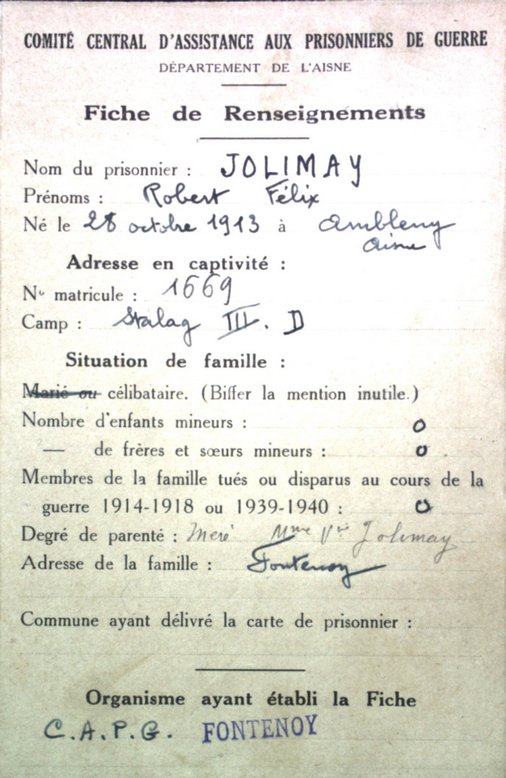 COMITÉ CENTRAL D'ASSISTANCE AUX PRISONNIERS DE GUERRE
DÉPARTEMENT DE L'AISNE
Fiche de Renseignements
Nom du prisonnier : JOLIMAY
Prénoms : Robert Félix
Né le 28 octobre 1913 à Ambleny
Aisne
Adresse en captivité :
No matricule : 1669
Camp : Stalag III. D
Situation de famille :
Marié ou célibataire. (Biffer la mention inutile.)
Nombre d'enfants mineurs : 0
— de frères et sœurs mineurs : 0
Membres de la famille tués ou disparus au cours de la
guerre 1914-1918 ou 1939-1940 : 0
Degré de parenté : Meré Mme Vve Jolimay
Adresse de la famille : Fontenoy
Commune ayant délivré la carte de prisonnier :
Organisme ayant établi la Fiche
C.A.P.G. FONTENOY